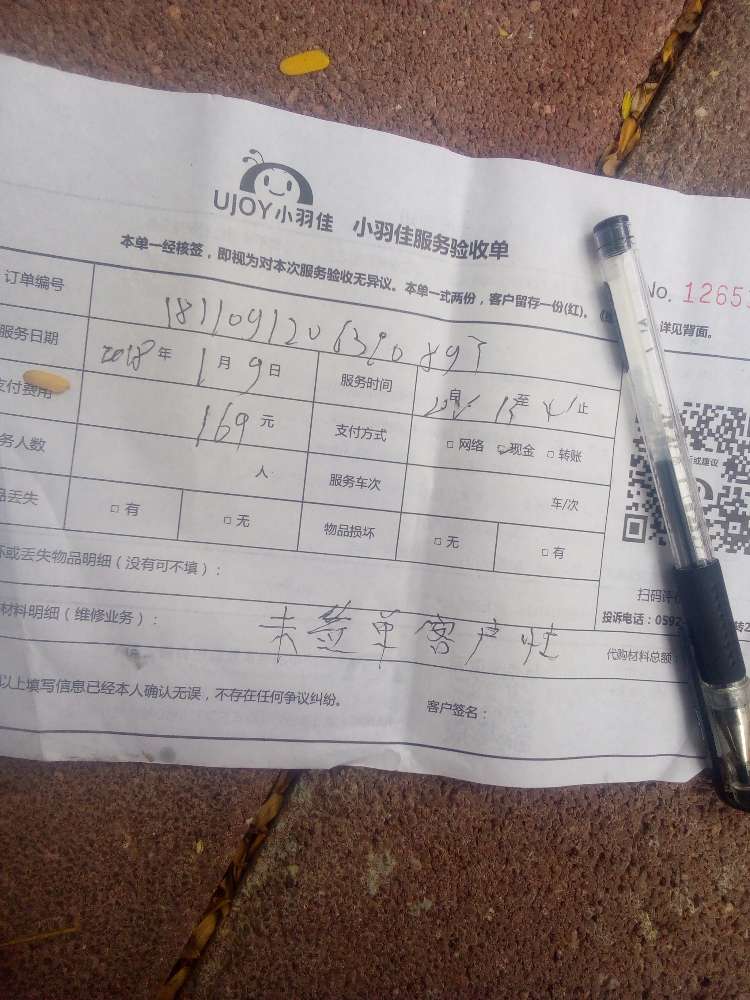 UJOY小羽佳 小羽佳服务验收单
No. 1265
本单一经核签，即视为对本次服务验收无异议。本单一式两份，客户留存一份(红)。 详见背面。
订单编号
服务日期 2018年 1月 9日 服务时间 自 至 止
支付费用 169元 支付方式 □网络 现金 □转账
务人数 人 服务车次 车/次
品丢失 □有 □无 物品损坏 □无 □有
坏或丢失物品明细（没有可不填）：
扫码评
材料明细（维修业务）： 未签单客户
投诉电话：0592
代购材料总额：
以上填写信息已经本人确认无误，不存在任何争议纠纷。 客户签名：